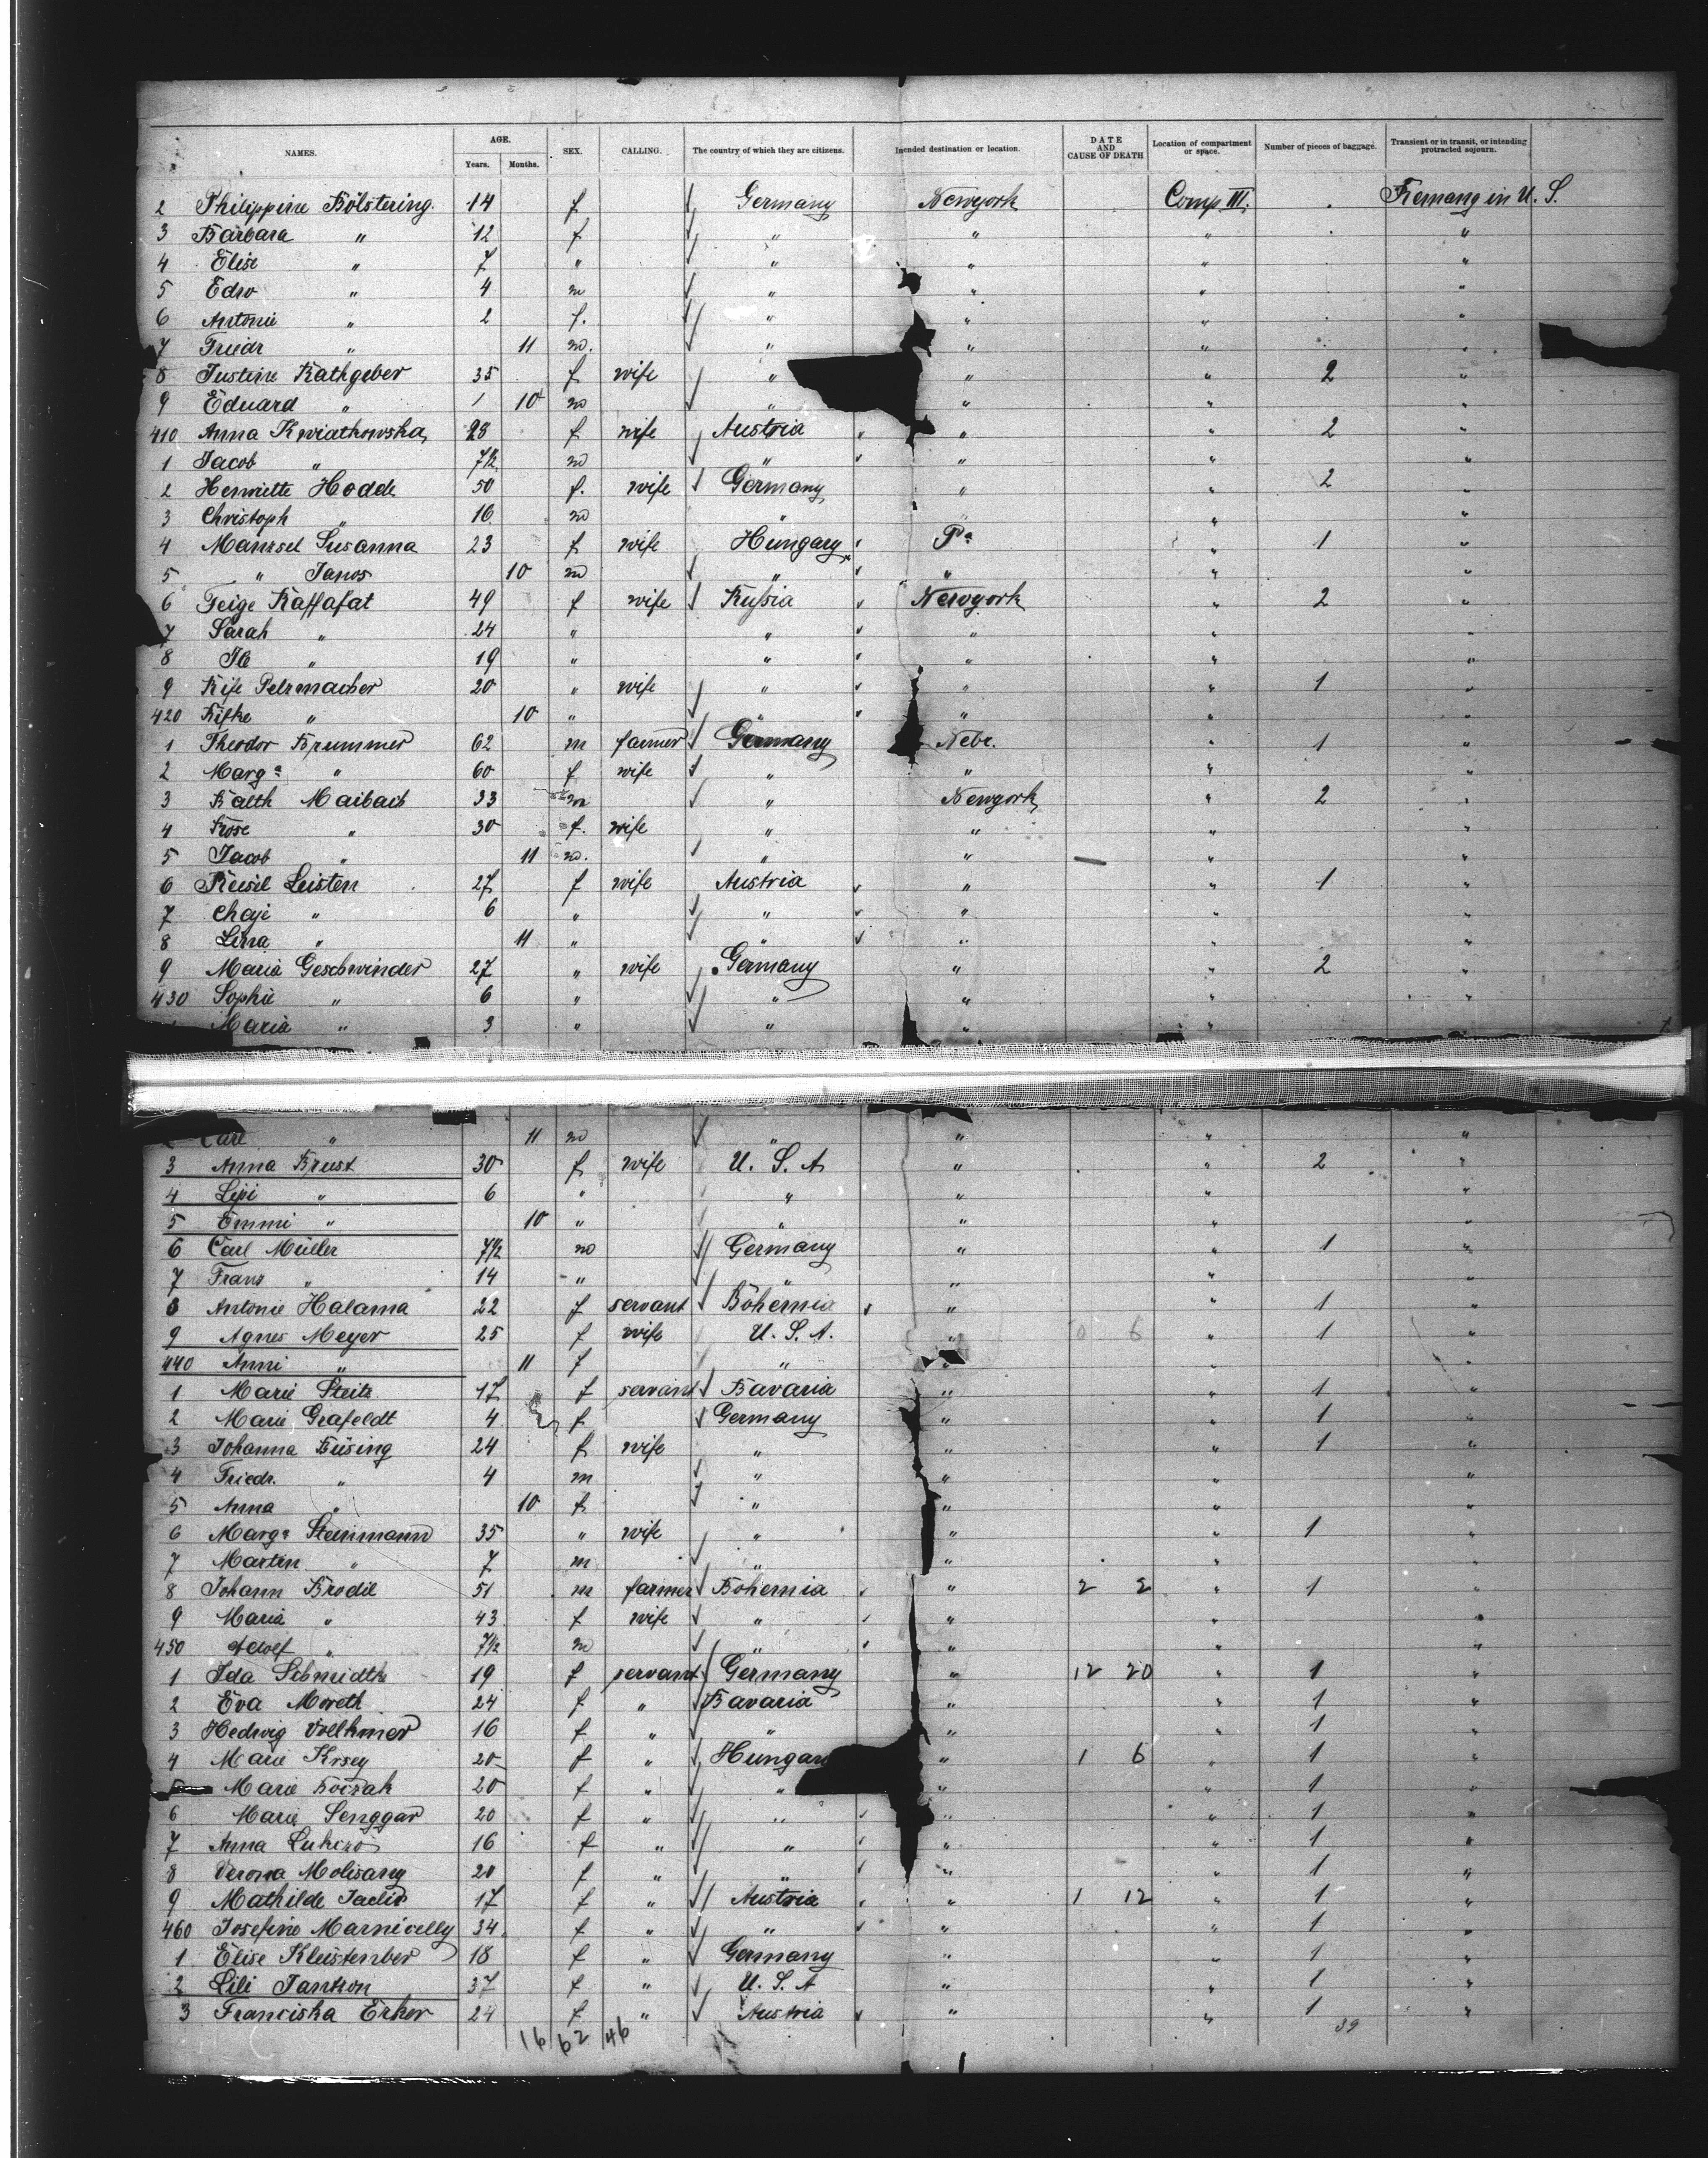 NAMES. AGE. Years. Months. SEX. CALLING. The country of which they are citizens. Intended destination or location. DATE AND CAUSE OF DEATH Location of compartment or space. Number of pieces of baggage. Transient or in transit, or intending protracted sojourn.
2 Philippine Bölstering 14 f Germany Newyork Comp III. Remang in U. S.
3 Barbara " 12 f " " " "
4 Elise " 7 " " " " "
5 " 4 m " " " "
6 Antonie " 2 f. " " " "
7 Friedr " 11 m. " " " "
8 Justine Rathgeber 35 f wife " " " 2 "
9 Eduard " 1 10 m " " " "
410 Anna Kwiatkowska 28 f wife Austria " " 2 "
1 Jacob " 7½ m " " " "
2 Henriette Hodde 50 f. wife Germany " " 2 "
3 Christoph " 16 m " " "
4 Susanna 23 f wife Hungary Pa " 1 "
5 " Janos 10 m " " " "
6 Feige 49 f wife Rußia Newyork " 2 "
7 Sarah " 24 " " " " "
8 " 19 " " " " "
9 Pelzmacher 20 " wife " " " 1 "
420 Rifke " 10 " " " " "
1 Theodor Brummer 62 m farmer Germany Nebr. " 1 "
2 Marga " 60 f wife " " " "
3 Balth Maibach 33 m " Newyork " 2 "
4 Rose " 30 f. wife " " " "
5 Jacob " 11 m. " " " "
6 Reisel Leisten 27 f wife Austria " " 1 "
7 Chaje " 6 " " " " "
8 Lina " 11 " " " " "
9 Maria Geschwinder 27 " wife Germany " " 2 "
430 Sophie " 6 " " " " "
Maria " 3 " " " "
2 Carl " 11 m " " " "
3 Anna Brust 30 f wife U. S. A " " 2 "
4 " 6 " " " " "
5 Emmi " 10 " " " " "
6 Carl Müller 7½ m Germany " " 1 "
7 Franz " 14 " " " " "
8 Antonie Halama 22 f servant Bohemia " " 1 "
9 Agnes Meyer 25 f wife U. S. A. " 0 6 " 1 "
440 Anni " 11 f " " " "
1 Marie Steitz 17 f servant Bavaria " " 1 "
2 Marie Grafeldt 4 f Germany " " 1 "
3 Johanna Büsing 24 f wife " " " 1 "
4 Friedr. " 4 m " " " "
5 Anna " 10 f " " " "
6 Marga Steinmann 35 " wife " " " 1 "
7 Martin " 7 m " " " "
8 Johann Brodil 51 m farmer Bohemia " 2 2 " 1 "
9 Maria " 43 f wife " " " "
450 Adolf " 7½ m " " " "
1 Ida Schmidtke 19 f servant Germany " 12 20 " 1 "
2 Eva Moreth 24 f " Bavaria " " 1 "
3 Hedwig Vollhmer 16 f " " " " 1 "
4 Marie Krsey 20 f " Hungary " 1 6 " 1 "
5 Marie 20 f " " " " 1 "
6 Marie Senggar 20 f " " " " 1 "
7 Anna 16 f " " " " 1 "
8 Verona Molisany 20 f " " " " 1 "
9 Mathilde 17 f " Austria " 1 12 " 1 "
460 Josefine Marnicelly 34 f " " " " 1 "
1 Elise Kleistenber 18 f " Germany " " 1 "
2 Lili Jantzon 37 f " U. S. A " " 1 "
3 Franciska Erker 24 f " Austria " " 1 "
16 62 46 39